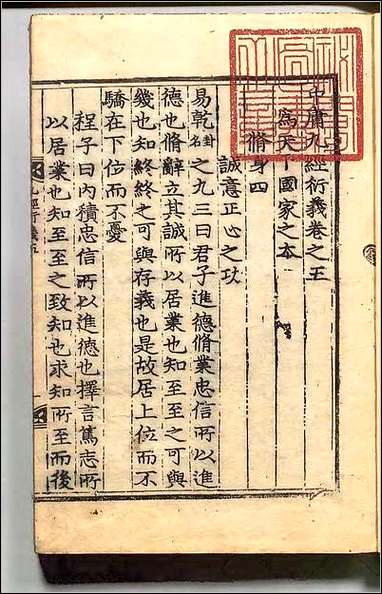 中庸九經衍義卷之五
為天下國家之本
脩身四
誠意正心之功
易乾卦名之九三曰君子進德脩業忠信所以進
德也脩辭立其誠所以居業也知至至之可與
幾也知終終之可與存義也是故居上位而不
驕在下位而不憂
程子曰內積忠信所以進德也擇言篤志所
以居業也知至至之致知也求知所至而後
九經衍義五